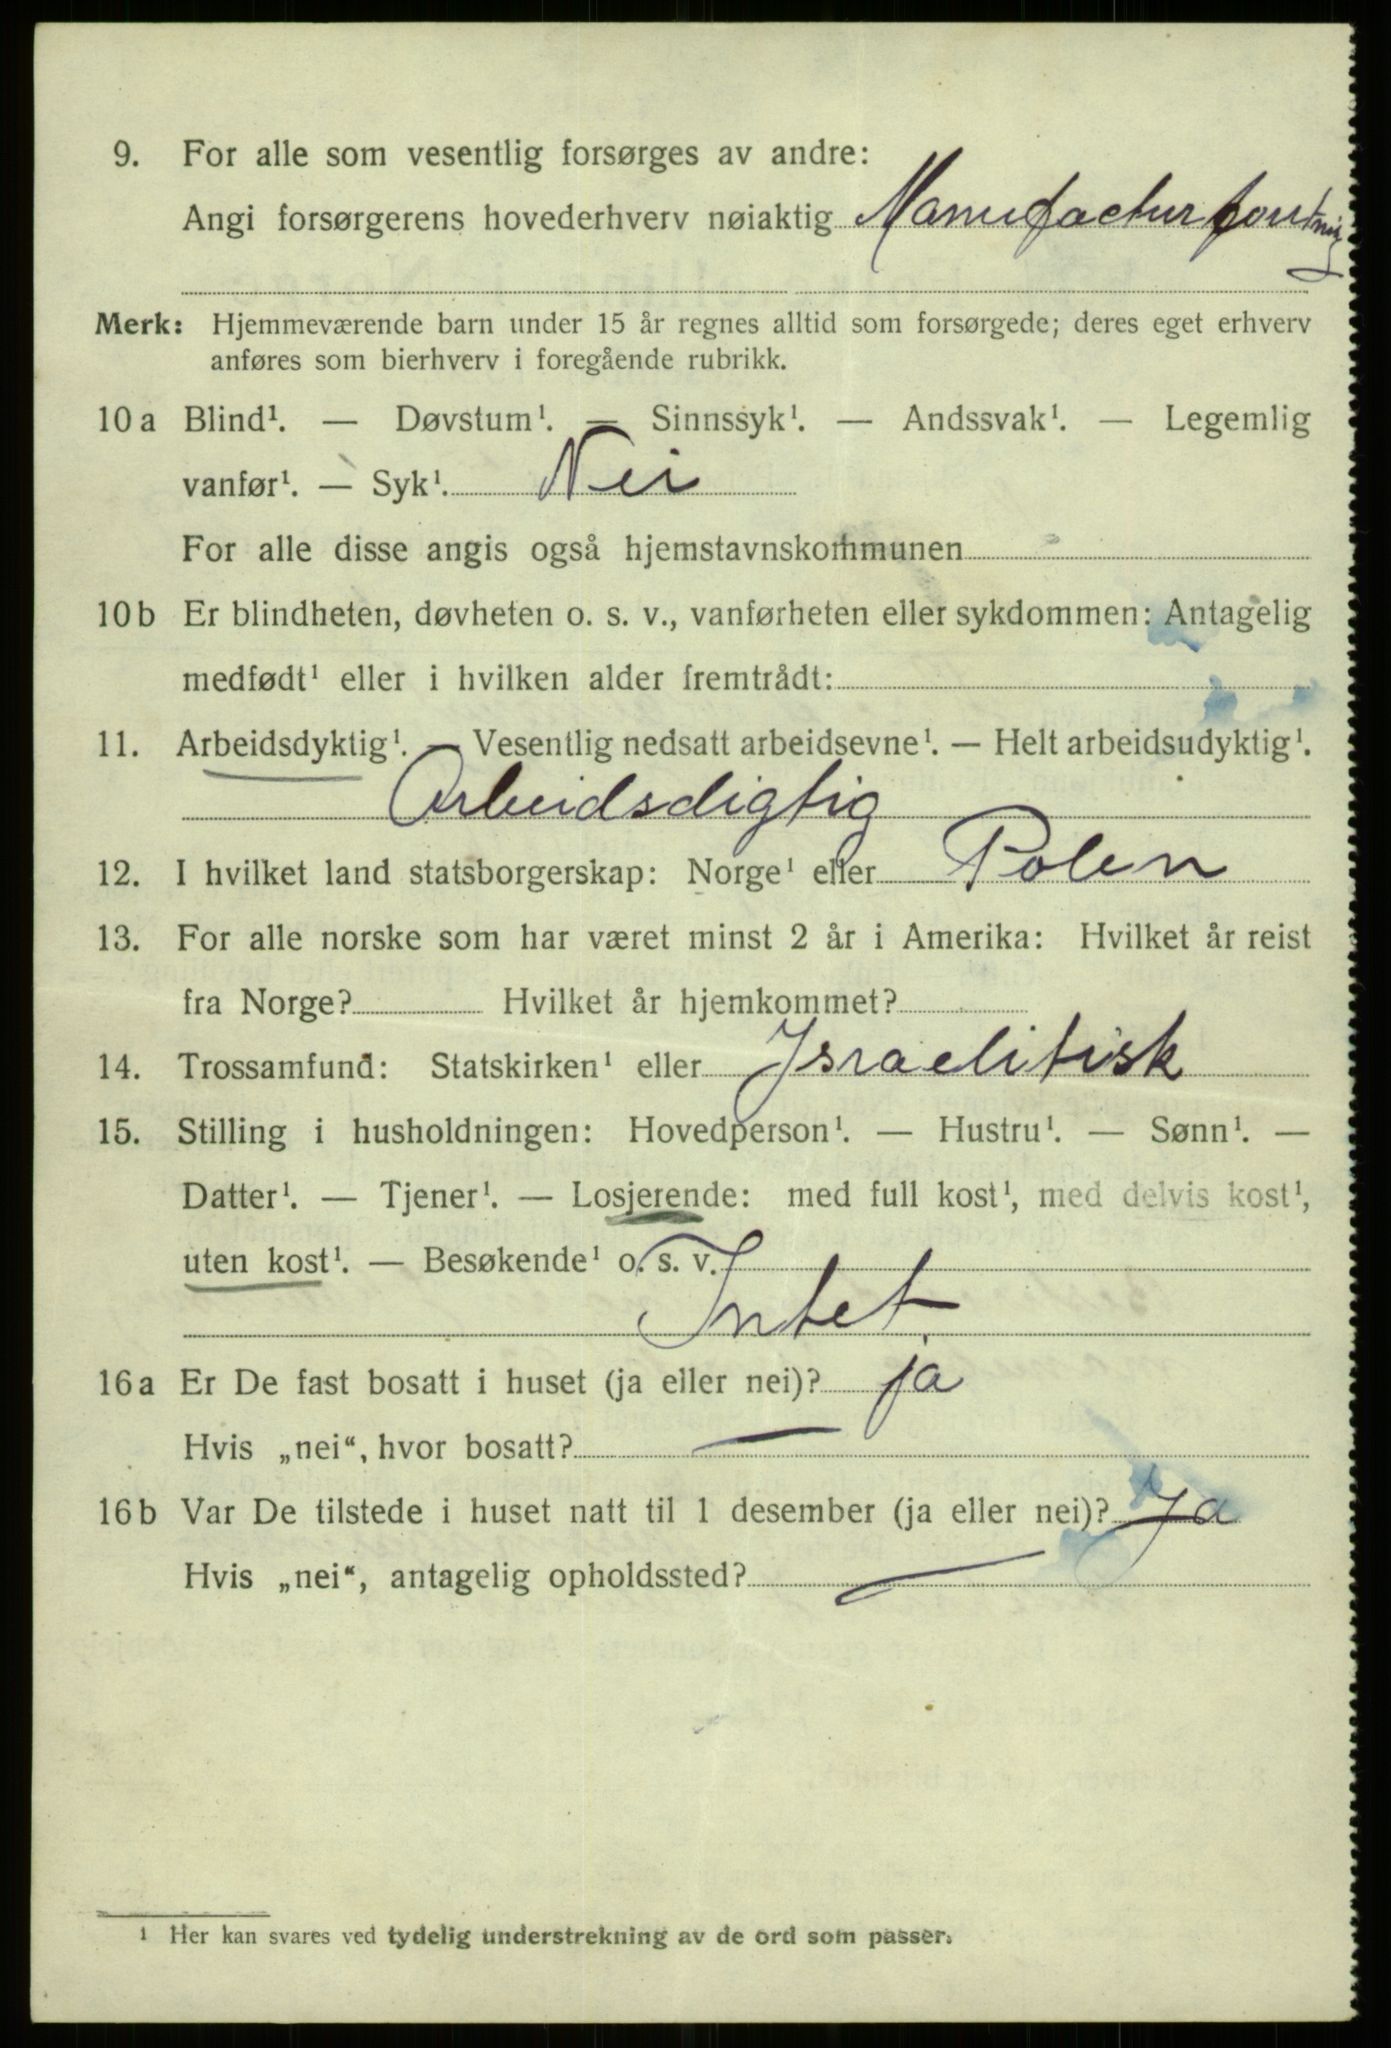 9. For alle som vesentlig forsørges av andre:
Angi forsørgerens hovederhverv nøiaktig Manufacturforretning
Merk: Hjemmeværende barn under 15 år regnes alltid som forsørgede; deres eget erhverv
anføres som bierhverv i foregående rubrikk.
10 a Blind¹. — Døvstum¹. — Sinnssyk¹. — Andssvak¹. — Legemlig
vanfør¹. — Syk¹. Nei
For alle disse angis også hjemstavnskommunen
10 b Er blindheten, døvheten o. s. v., vanførheten eller sykdommen: Antagelig
medfødt¹ eller i hvilken alder fremtrådt:
11. Arbeidsdyktig¹. — Vesentlig nedsatt arbeidsevne¹. — Helt arbeidsudyktig¹.
Arbeidsdigtig
12. I hvilket land statsborgerskap: Norge¹ eller Polen
13. For alle norske som har været minst 2 år i Amerika: Hvilket år reist
fra Norge? Hvilket år hjemkommet?
14. Trossamfund: Statskirken¹ eller Israelitisk
15. Stilling i husholdningen: Hovedperson¹. — Hustru¹. — Sønn¹. —
Datter¹. — Tjener¹. — Losjerende: med full kost¹, med delvis kost¹,
uten kost¹. — Besøkende¹ o. s. v.
Intet
16 a Er De fast bosatt i huset (ja eller nei)? ja
Hvis „nei“, hvor bosatt? —
16 b Var De tilstede i huset natt til 1 desember (ja eller nei)? Ja
Hvis „nei“, antagelig opholdssted? —
¹ Her kan svares ved tydelig understrekning av de ord som passer.